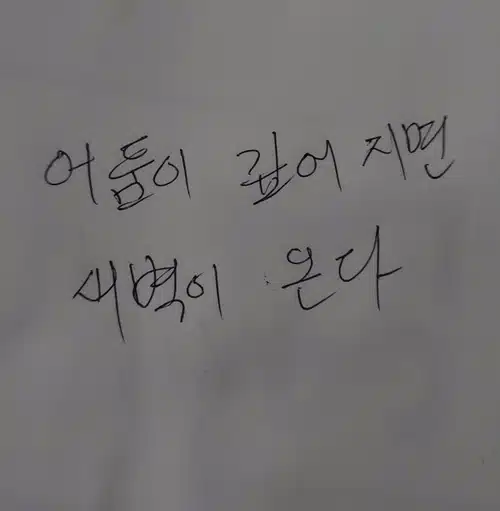 어둠이 깊어 지면
새벽이 온다